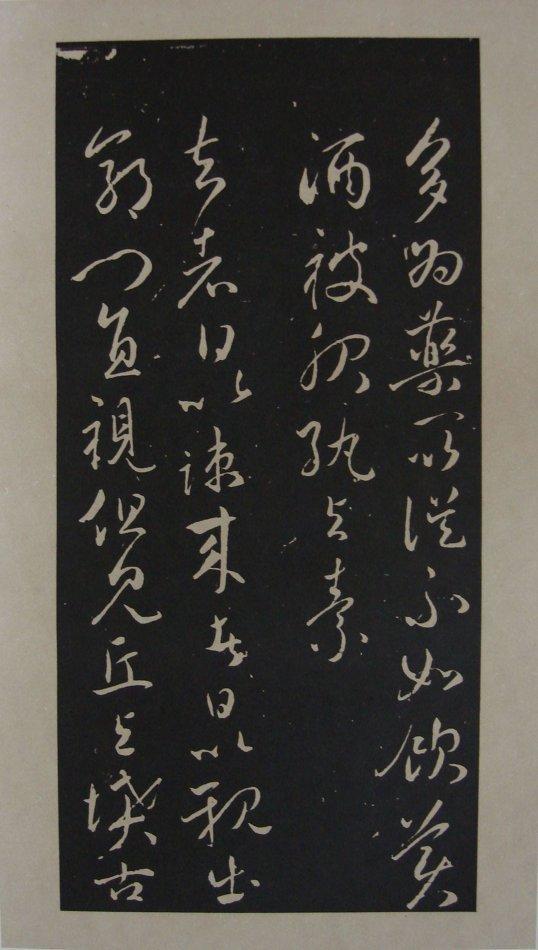 多為藥所誤不如飲美
酒被服紈與素
去者日以疎来者日以親出
郭門直視但見丘與墳古